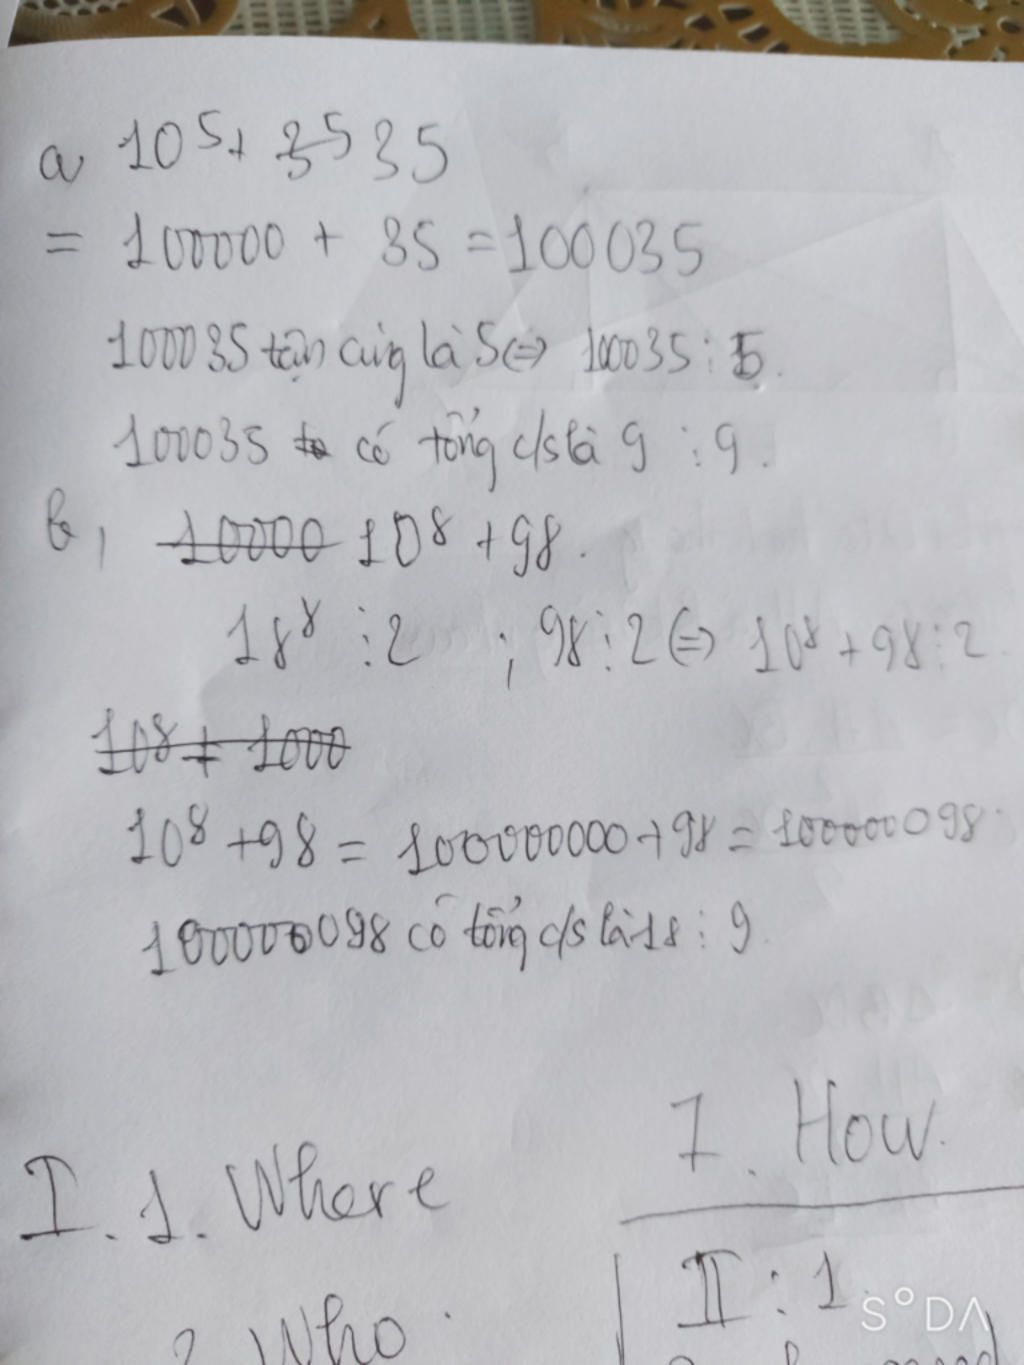 a 10⁵ + 35 35
= 100000 + 35 = 100035
100035 tận cùng là 5 ⇔ 100035 ⋮ 5.
100035 có tổng c/s là 9 ⋮ 9.
b, 10000 10⁸ + 98.
18⁸ ⋮ 2 ; 98 ⋮ 2 ⇔ 10⁸ + 98 ⋮ 2
10⁸ + 1000
10⁸ + 98 = 100000000 + 98 = 100000098
100000098 có tổng c/s là 18 ⋮ 9.
7. How.
I. 1. Where
II : 1
2 Who
S°DA